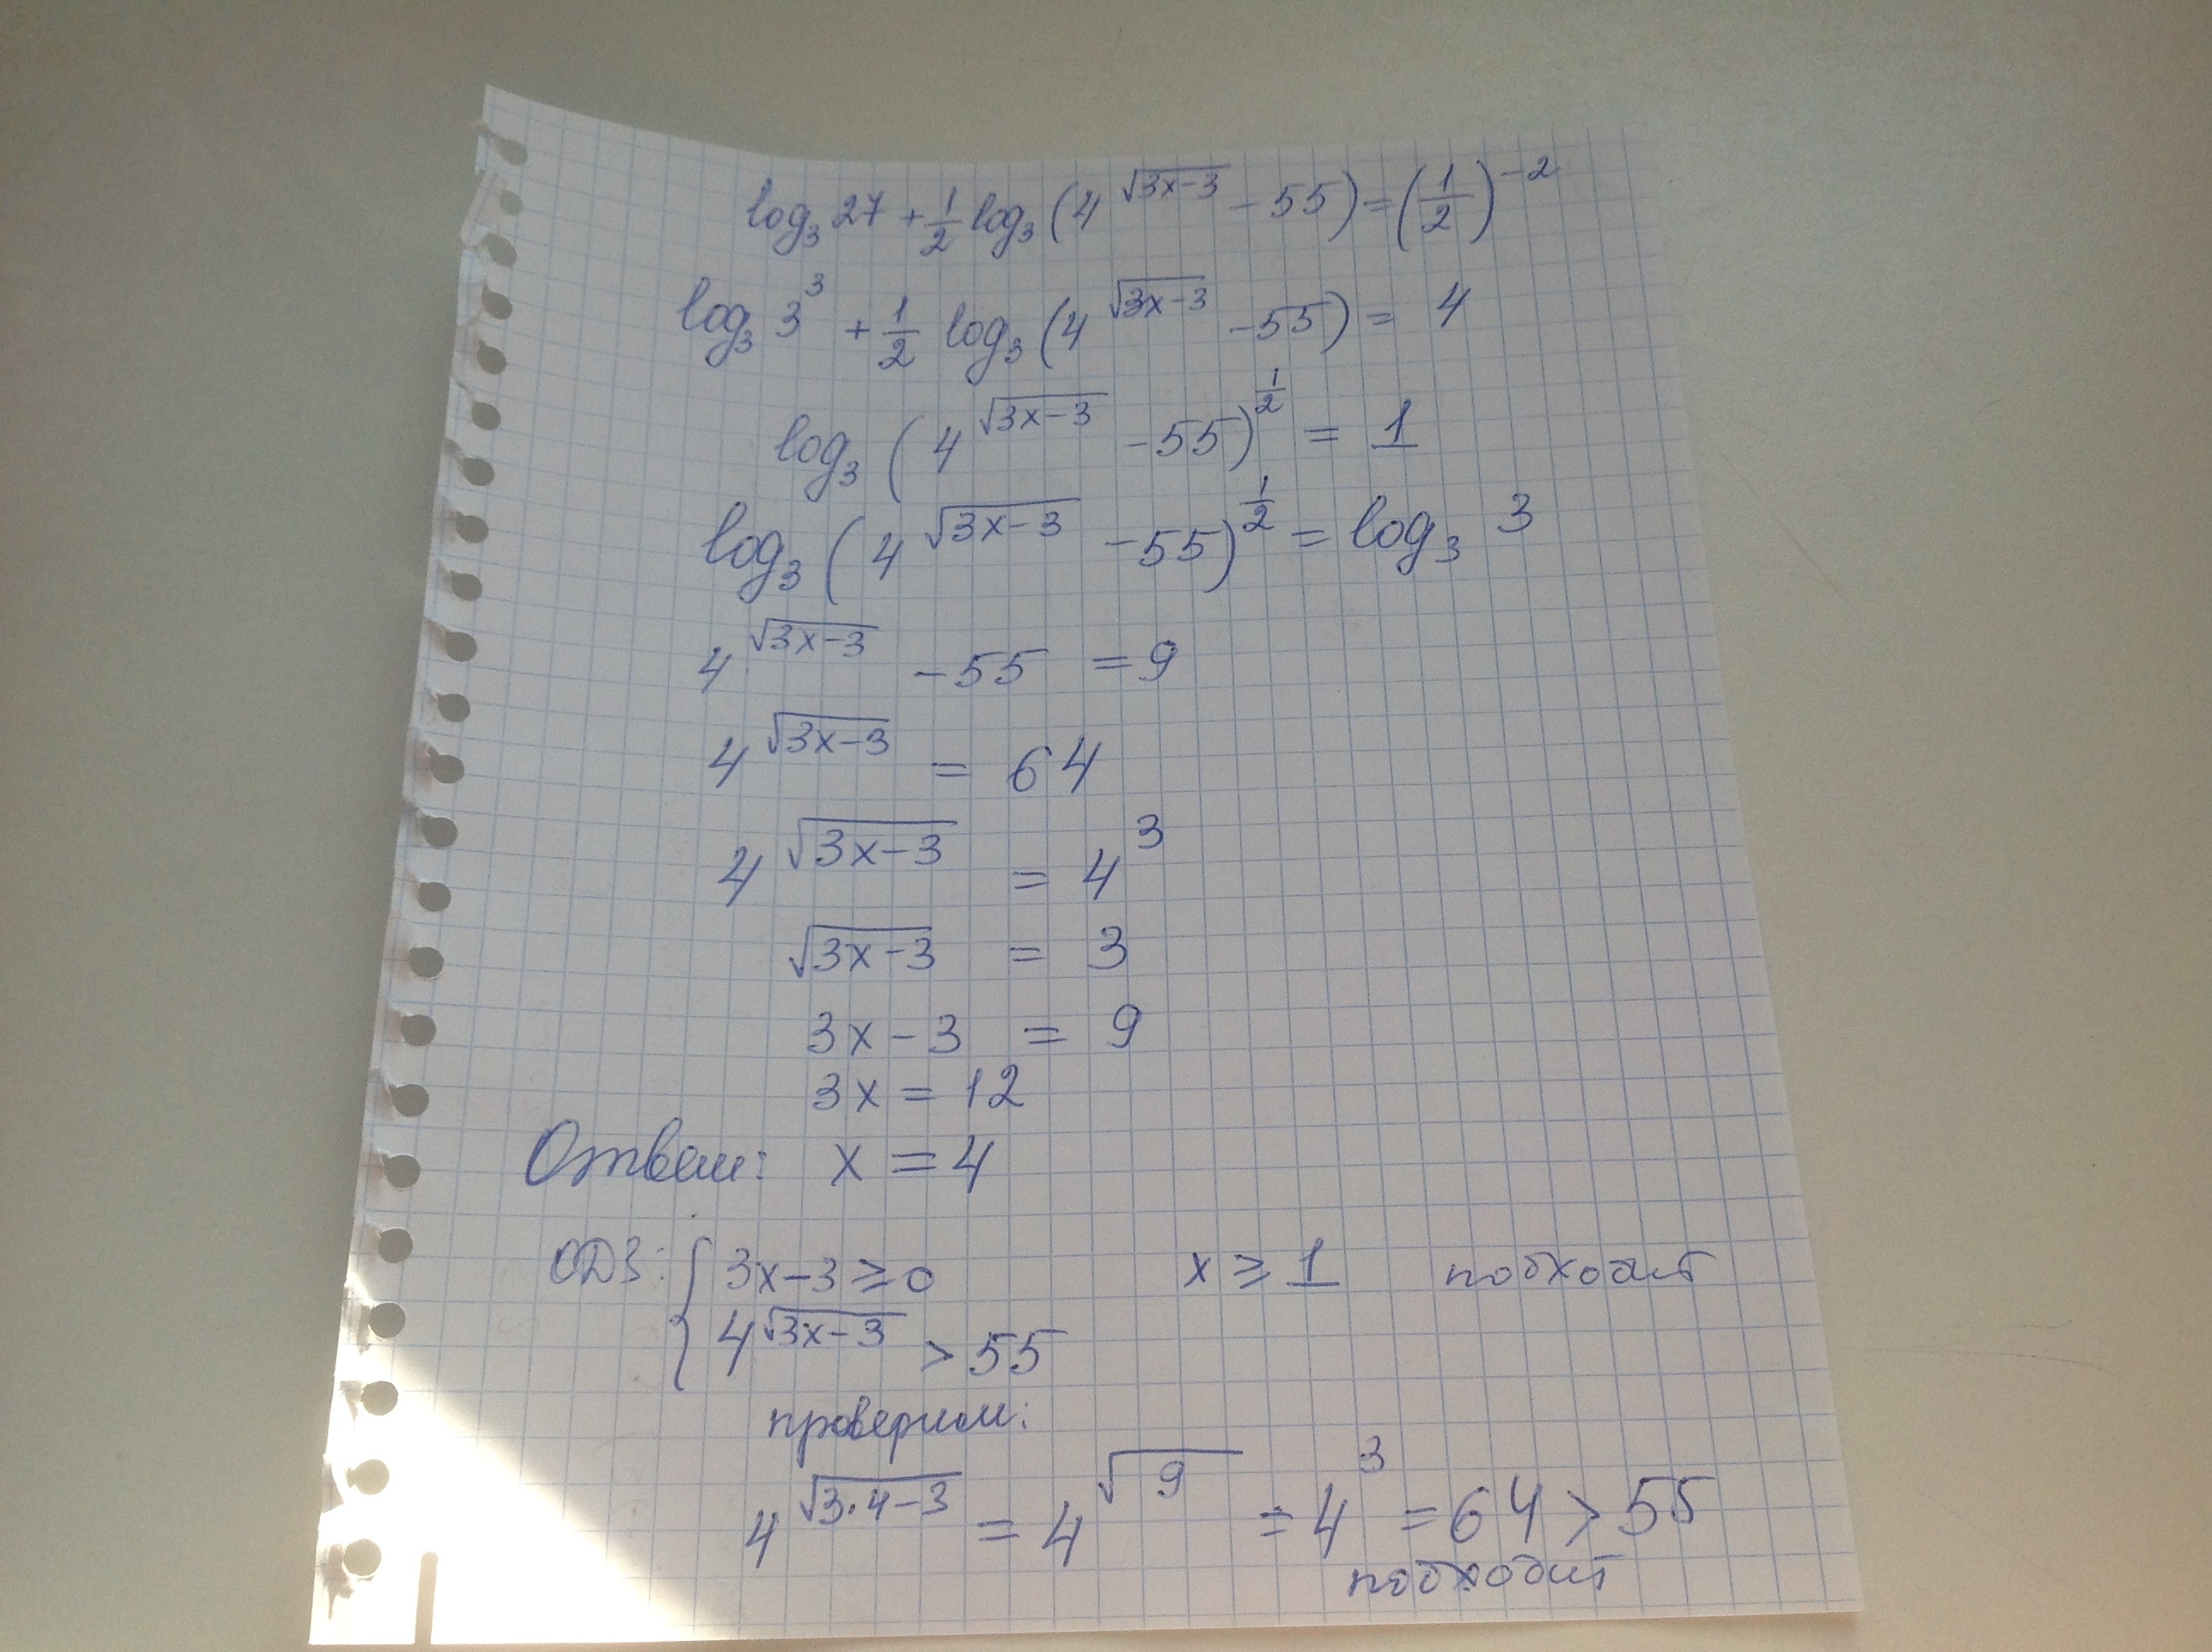 log₃ 27 + 1/2 log₃ (4^√(3x-3) - 55) = (1/2)^-2
log₃ 3³ + 1/2 log₃ (4^√(3x-3) - 55) = 4
log₃ (4^√(3x-3) - 55)^1/2 = 1
log₃ (4^√(3x-3) - 55)^1/2 = log₃ 3
4^√(3x-3) - 55 = 9
4^√(3x-3) = 64
4^√(3x-3) = 4³
√(3x-3) = 3
3x - 3 = 9
3x = 12
Ответ: x = 4
ОДЗ: { 3x-3 ≥ 0 x ≥ 1 подходит
4^√(3x-3) > 55
проверим:
4^√(3·4-3) = 4^√9 = 4³ = 64 > 55
подходит